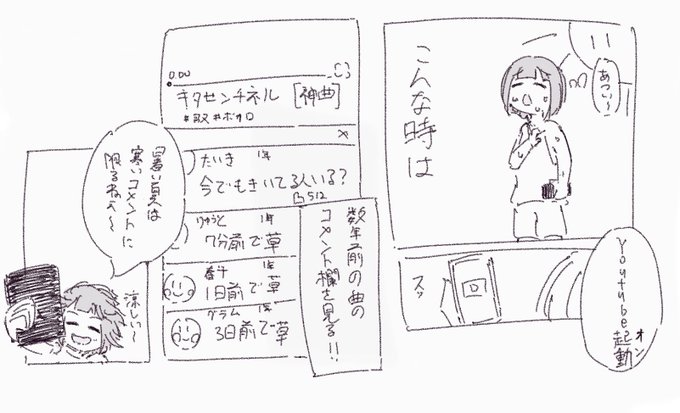 あつい〜
こんな時は
Youtube起動
オン
スッ
0:00
キタセンチネル [神曲]
#叙 #ボカロ
×
たいき 1年
今でもきいてる人いる?
512
りゅうと 1年
7分前で草
春斗 1年
1日前で草
グラム 1年
3日前で草
数年前の曲の
コメント欄を見る!!
暑い夏は
寒いコメントに
限るねぇ〜
涼しい〜